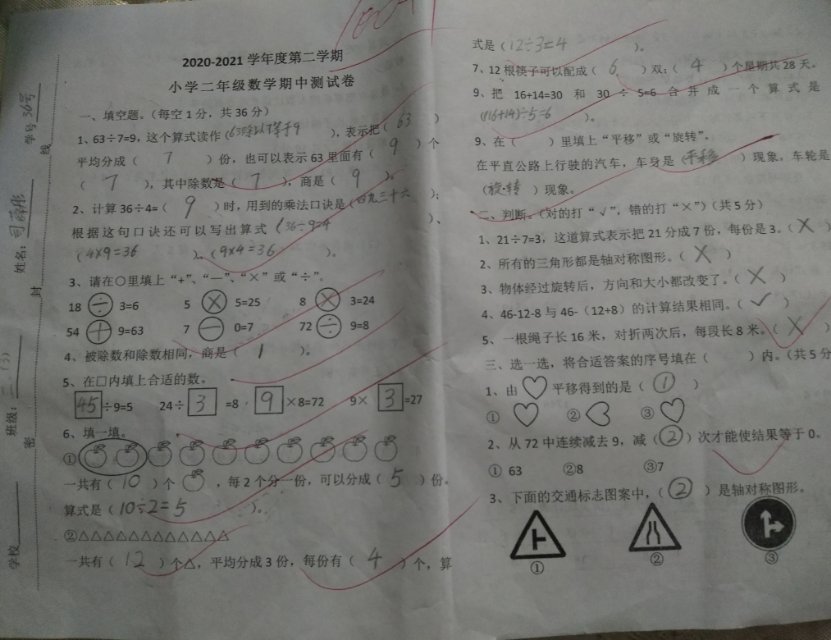 100
2020-2021 学年度第二学期
小学二年级数学期中测试卷
学号 36号
姓名:
班级:
学校
线
封
密
一、填空题。(每空1分,共36分)
1、63÷7=9,这个算式读作(63除以7等于9),表示把(63)
平均分成(7)份,也可以表示63里面有(9)个
(7),其中除数是(7),商是(9)。
2、计算36÷4=(9)时,用到的乘法口诀是(四九三十六);
根据这句口诀还可以写出算式(36÷9=4)、
(4×9=36)、(9×4=36)。
3、请在○里填上“+”、“—”、“×”或“÷”。
18÷3=6 5×5=25 8×3=24
54+9=63 7—0=7 72÷9=8
4、被除数和除数相同,商是(1)。
5、在□内填上合适的数。
45÷9=5 24÷3=8 9×8=72 9×3=27
6、填一填。
①
一共有(10)个,每2个分一份,可以分成(5)份。
算式是(10÷2=5)。
②△△△△△△△△△△△△
一共有(12)个△,平均分成3份,每份有(4)个,算
式是(12÷3=4)。
7、12根筷子可以配成(6)双;(4)个星期共28天。
9、把 16+14=30 和 30÷5=6 合并成一个算式是
((16+14)÷5=6)。
9、在( )里填上“平移”或“旋转”。
在平直公路上行驶的汽车,车身是(平移)现象,车轮是
(旋转)现象。
二、判断。(对的打“√”,错的打“×”)(共5分)
1、21÷7=3,这道算式表示把21分成7份,每份是3。(×)
2、所有的三角形都是轴对称图形。(×)
3、物体经过旋转后,方向和大小都改变了。(×)
4、46-12-8与46-(12+8)的计算结果相同。(✓)
5、一根绳子长16米,对折两次后,每段长8米。(×)
三、选一选,将合适答案的序号填在( )内。(共5分
1、由♡平移得到的是(①)
① ② ③
2、从72中连续减去9,减(②)次才能使结果等于0。
① 63 ②8 ③7
3、下面的交通标志图案中,(②)是轴对称图形。
① ② ③